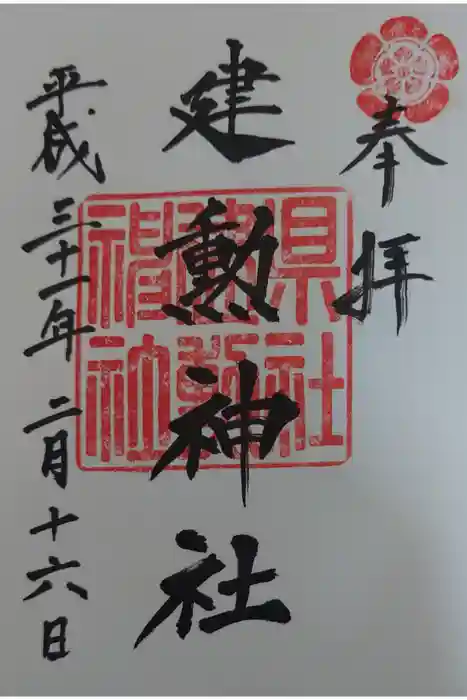 奉拝
建勲神社
県社
建勲
神社
平成三十一年二月十六日